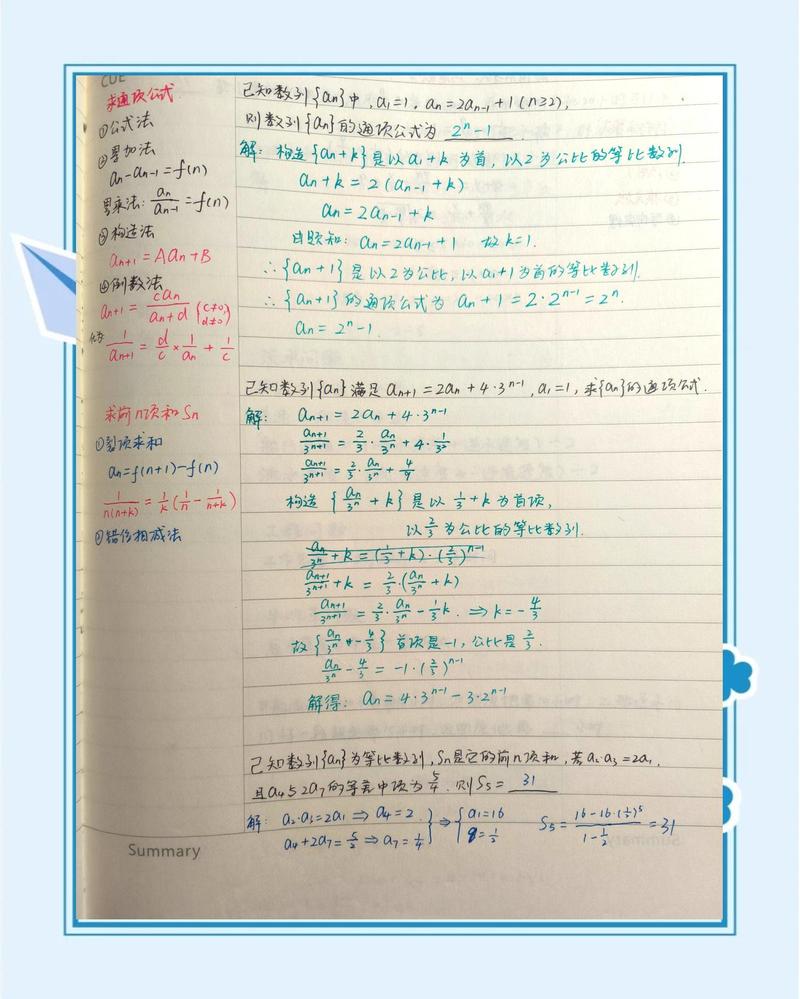 CUE
求通项公式
①公式法
②累加法
an-an-1=f(n)
累乘法: an/an-1=f(n)
③构造法
an+1=Aan+B
④倒数法
an+1=can/(an+d) (c≠0, d≠0)
1/an+1=d/c×1/an+1/c
求前n项和Sn
①裂项求和
an=f(n+1)-f(n)
1/n(n+k)=1/k(1/n-1/(n+k))
②错位相减法
已知数列{an}中,a1=1,an=2an-1+1(n≥2),
则数列{an}的通项公式为 2^n-1 .
解: 构造{an+k}是以a1+k为首,以2为公比的等比数列.
an+k=2(an-1+k)
an=2an-1+k
由题知: an=2an-1+1 故k=1.
∴{an+1}是以2为公比,以a1+1为首的等比数列.
∴{an+1}的通项公式为 an+1=2·2^(n-1)=2^n.
an=2^n-1.
已知数列{an}满足an+1=2an+4·3^(n-1),a1=1,求{an}的通项公式.
解: an+1=2an+4·3^(n-1)
an+1/3^(n+1)=2/3·an/3^n+4·1/3²
an+1/3^(n+1)=2/3·an/3^n+4/9
构造{an/3^n+k}是以1/3+k为首项,
以2/3为公比的等比数列.
an/3^n+k=(1/3+k)·(2/3)^(n-1)
an+1/3^(n+1)+k=2/3·(an/3^n+k)
an+1/3^(n+1)=2/3·an/3^n-1/3k. ⇒k=-4/3
故{an/3^n-4/3}首项是-1,公比是2/3.
an/3^n-4/3=-1·(2/3)^(n-1)
解得: an=4·3^(n-1)-3·2^(n-1)
已知数列{an}为等比数列,Sn是它的前n项和,若a2·a3=2a1,
且a4与2a7的等差中项为5/4.则S5= 31
解: a2·a3=2a1⇒a4=2
a4+2a7=5/2⇒a7=1/4
}⇒{a1=16 q=1/2 S5=(16-16·(1/2)^5)/(1-1/2)=31
Summary